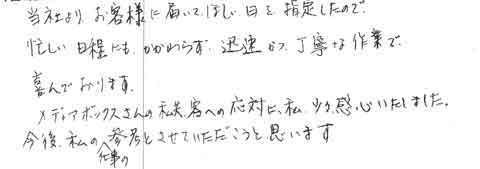 当社より、お客様に届いてほしい日を指定したので、
忙しい日程にもかかわらず、迅速かつ丁寧な作業で、
喜んでおります。
メディアボックスさんの私共、客への応対に、私、少々感心いたしました。
今後、私の仕事の参考とさせていただこうと思います